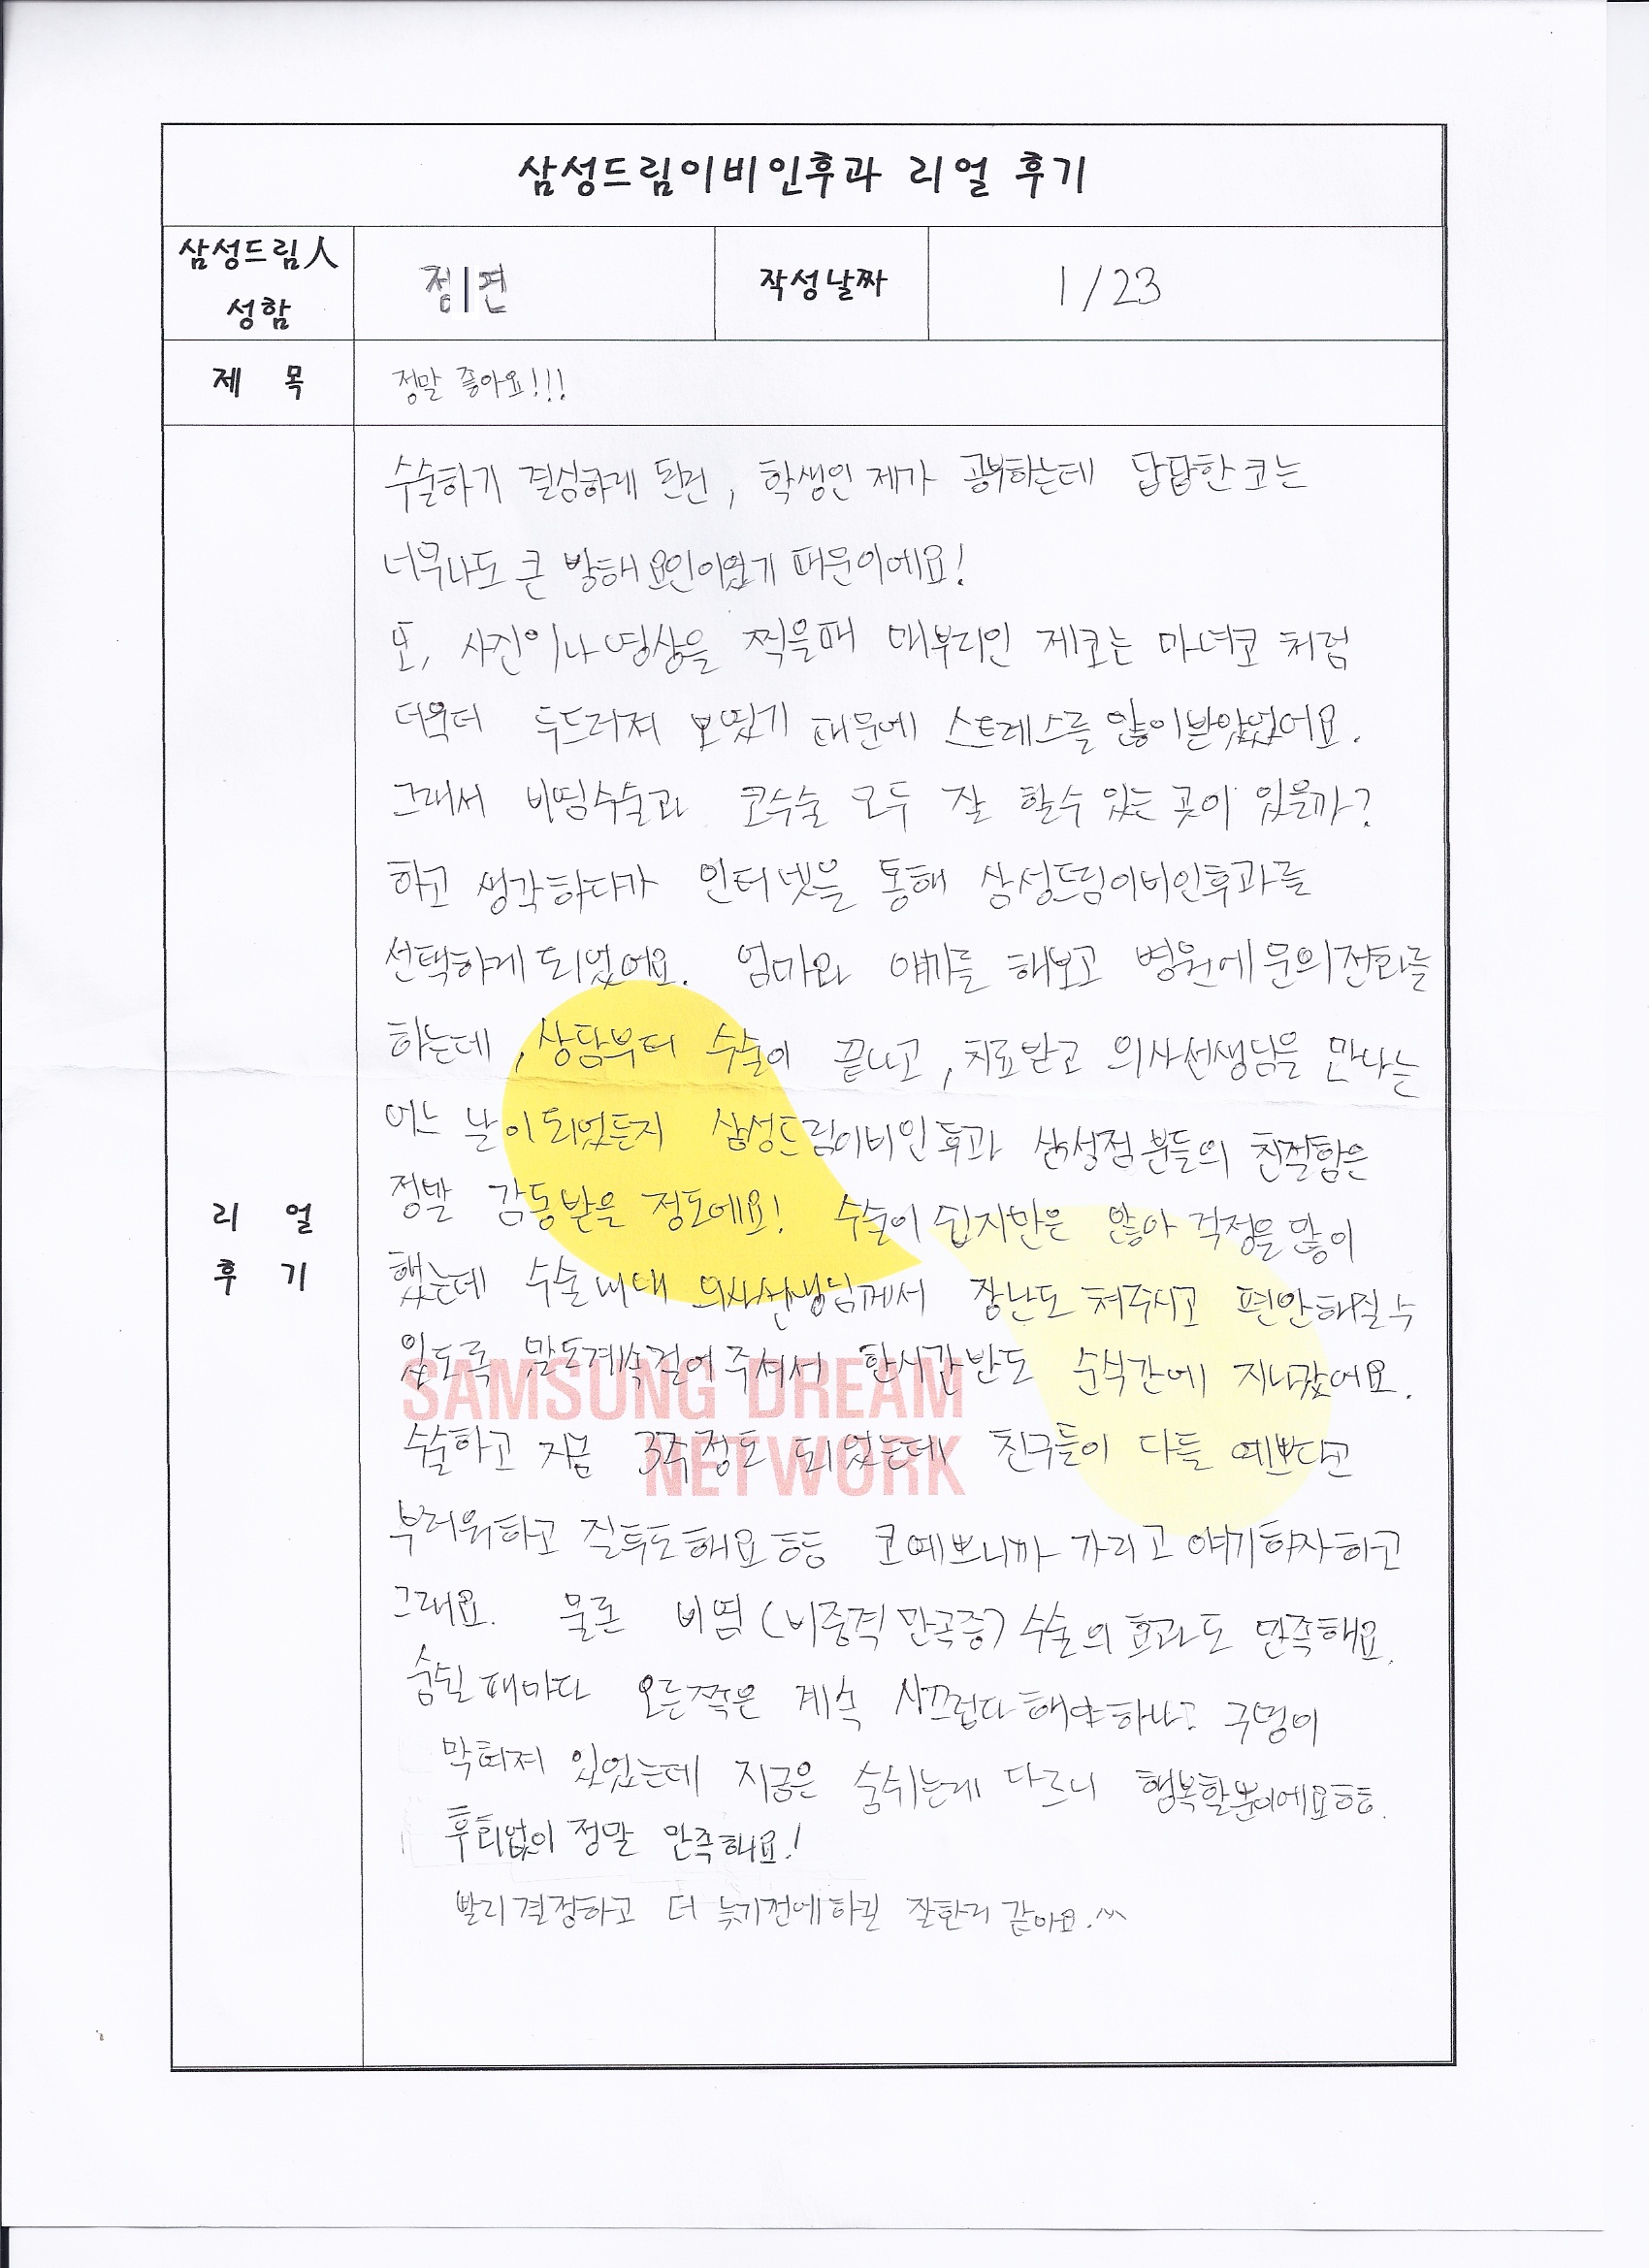 삼성드림이비인후과 리얼 후기
삼성드림人
성함
정 편
작성날짜
1/23
제 목
정말 좋아요!!!
리 얼
후 기
수술하기 결심하게 된건, 학생인 제가 공부하는데 답답한 코는
너무나도 큰 방해요인이었기 때문이에요!
또, 사진이나 영상을 찍을때 매부리인 제코는 마녀코 처럼
더욱더 두드러져 보였기 때문에 스트레스를 많이받았었어요.
그래서 비염수술과 코수술 모두 잘 할수 있는 곳이 있을까?
하고 생각하다가 인터넷을 통해 삼성드림이비인후과를
선택하게 되었어요. 엄마와 얘기를 해보고 병원에 문의전화를
하는데, 상담부터 수술이 끝나고, 치료받고 의사선생님을 만나는
어느 날이 되었든지 삼성드림이비인후과 삼성점분들의 친절함은
정말 감동받을 정도에요! 수술이 쉽지만은 않아 걱정을 많이
했는데 수술내내 의사선생님께서 장난도 쳐주시고 편안해질수
있도록 말도계속걸어주셔서 한시간반도 순식간에 지나갔어요.
수술하고 지금 3주정도 되었는데 친구들이 다들 예쁘다고
부러워하고 질투도해요ㅎㅎ 코예쁘니까 가리고 얘기하자하고
그래요. 물론 비염(비중격만곡증) 수술의 효과도 만족해요.
숨쉴때마다 오른쪽은 계속 시끄럽다해야하나? 구멍이
막혀져 있었는데 지금은 숨쉬는게 다르니 행복할뿐이에요ㅎㅎ.
후회없이 정말 만족해요!
빨리결정하고 더 늦기전에하길 잘한거 같아요.^^
SAMSUNG DREAM
NETWORK